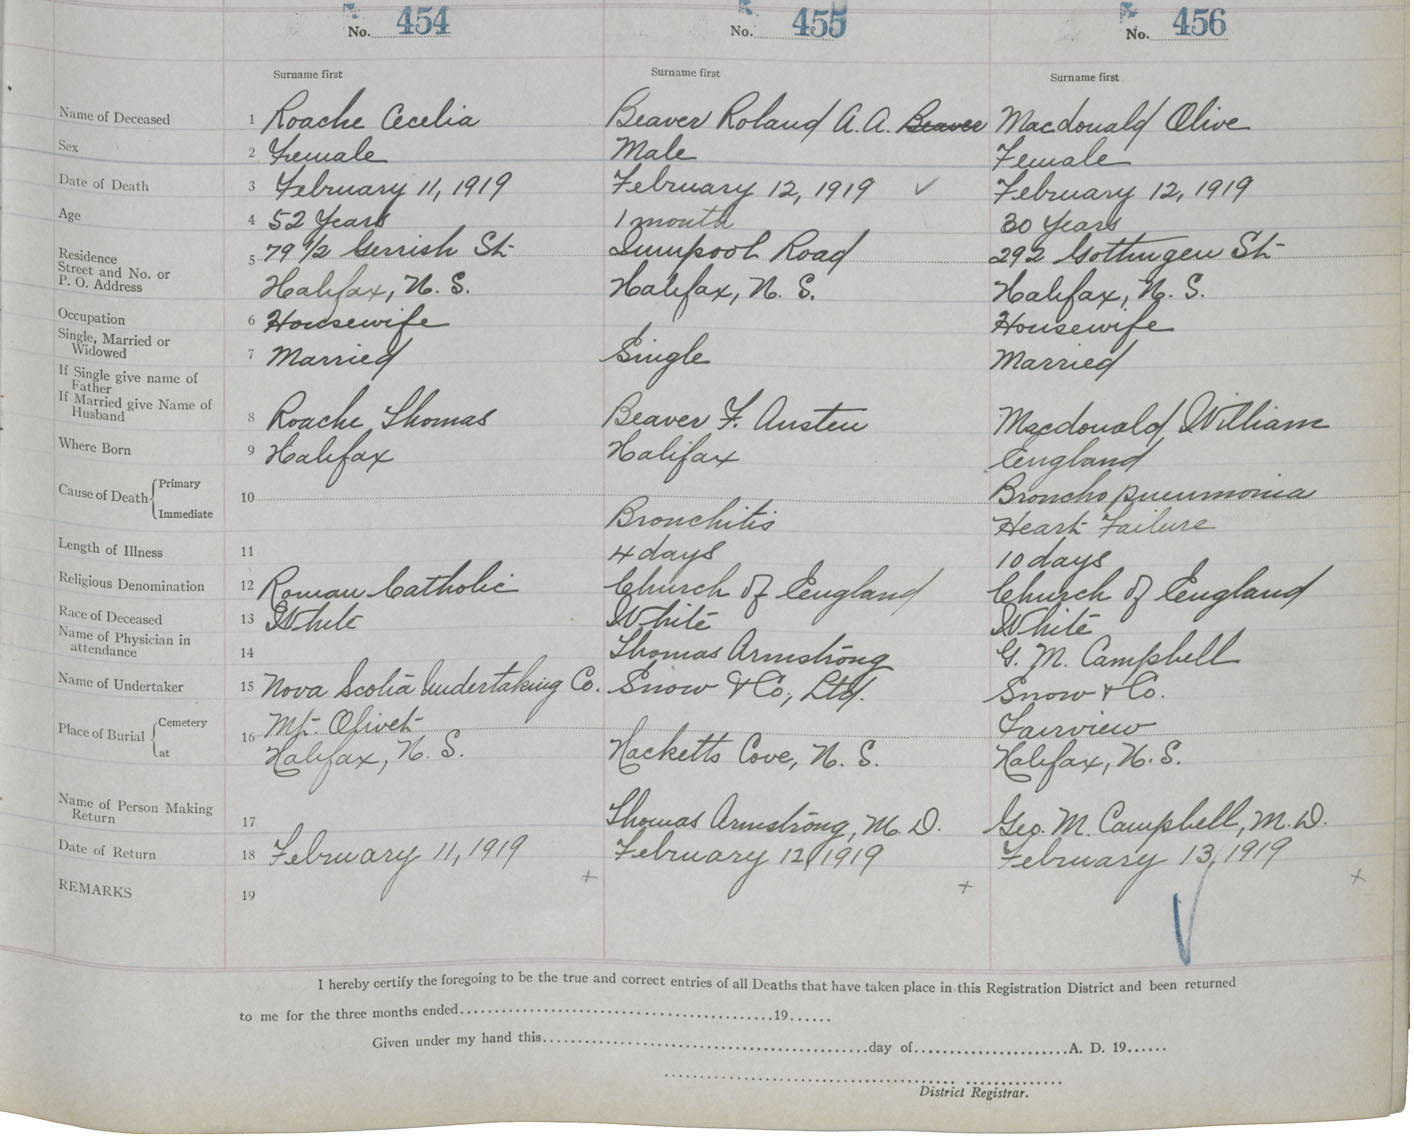 No. 454 No. 455 No. 456
Surname first Surname first Surname first
Name of Deceased 1 Roache Cecelia Beaver Roland A. A. Beaver Macdonald Olive
Sex 2 Female Male Female
Date of Death 3 February 11, 1919 February 12, 1919 ✓ February 12, 1919
Age 4 52 Years 1 month 30 Years
Residence 5 79 1/2 Gerrish St Quinpool Road 292 Gottingen St
Street and No. or
P. O. Address Halifax, N. S. Halifax, N. S. Halifax, N. S.
Occupation 6 Housewife Housewife
Single, Married or
Widowed 7 Married Single Married
If Single give name of
Father
If Married give Name of
Husband 8 Roache Thomas Beaver F. Austen Macdonald William
Where Born 9 Halifax Halifax England
Cause of Death Primary 10 Broncho pneumonia
Immediate Bronchitis Heart Failure
Length of Illness 11 4 days 10 days
Religious Denomination 12 Roman Catholic Church of England Church of England
Race of Deceased 13 White White White
Name of Physician in
attendance 14 Thomas Armstrong G. M. Campbell
Name of Undertaker 15 Nova Scotia Undertaking Co. Snow & Co., Ltd. Snow & Co.
Place of Burial Cemetery 16 Mt. Olivet Fairview
at Halifax, N. S. Hacketts Cove, N. S. Halifax, N. S.
Name of Person Making
Return 17 Thomas Armstrong, M. D. Geo. M. Campbell, M. D.
Date of Return 18 February 11, 1919 February 12, 1919 February 13, 1919
REMARKS 19 + + +
I hereby certify the foregoing to be the true and correct entries of all Deaths that have taken place in this Registration District and been returned
to me for the three months ended..........19......
Given under my hand this..........day of..........A. D. 19......
District Registrar.